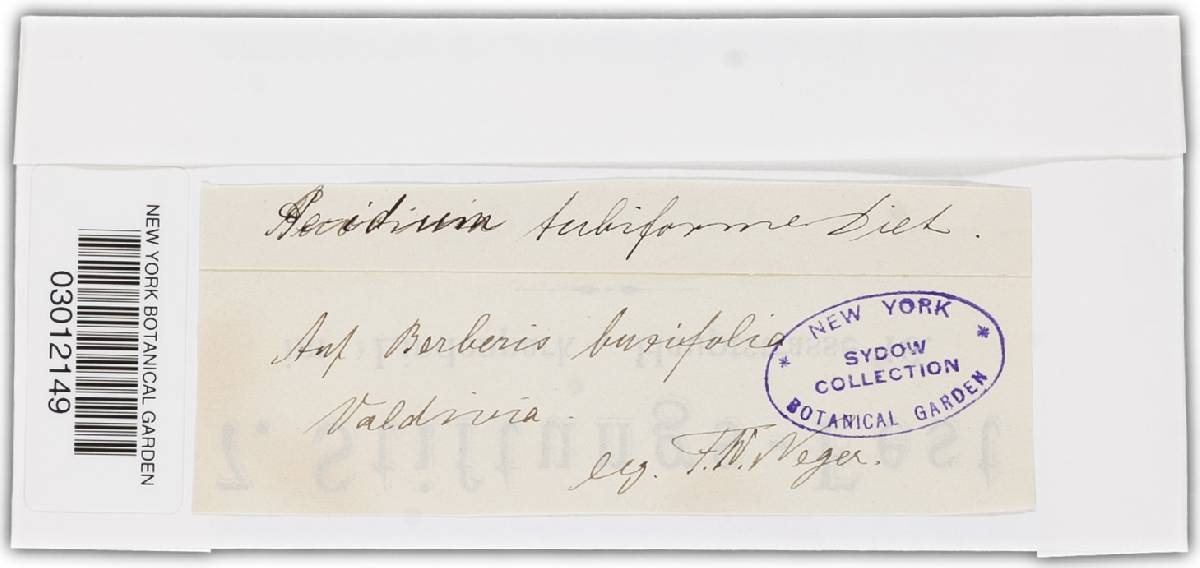 NEW YORK BOTANICAL GARDEN
03012149
Aecidium tubiforme Diet.
Auf Berberis buxifolia
Valdivia.
leg. F.W. Neger.
NEW YORK
SYDOW
COLLECTION
BOTANICAL GARDEN
7. Stiftungsfest